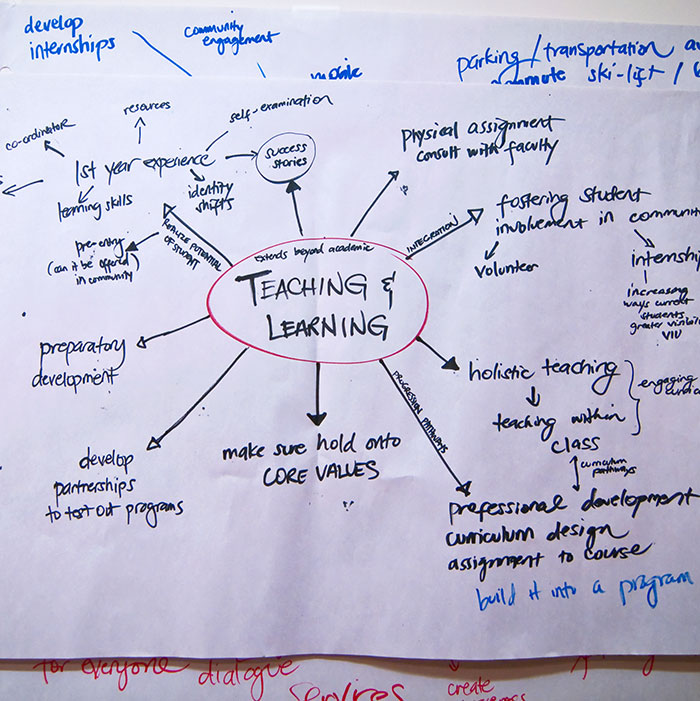 develop
internships
community
engagement
mobile
parking/transportation
ski-lift /
co-ordinator
resources
self-examination
1st year experience
success
stories
learning skills
identity
shifts
physical assignment
consult with faculty
REALIZE POTENTIAL
OF STUDENT
INTEGRATION
fostering student
involvement in
volunteer
increasing
ways current
students
greater
VIU
pre-entry
(can it be offered)
in community
extends beyond academic
TEACHING &
LEARNING
preparatory
development
holistic teaching
teaching within
class
engaging
PROGRESSION PATHWAYS
curriculum
pathways
make sure hold onto
CORE VALUES
develop
partnerships
to test out programs
professional development
curriculum design
assignment to course
build it into a program
for everyone dialogue
services
create